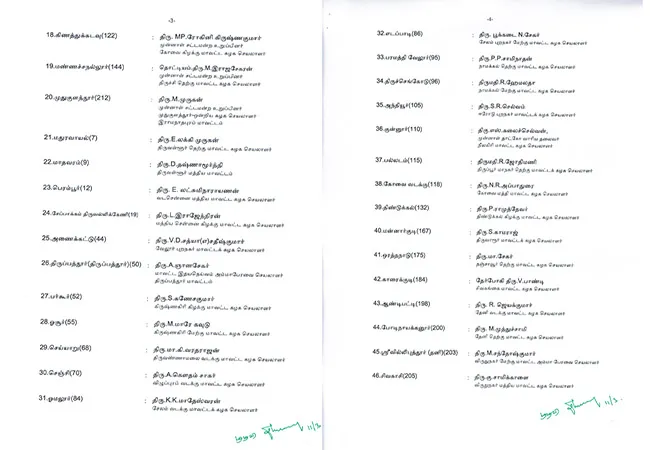 -3-
18.கிணத்துக்கடவு(122) : திரு. MP.ரோகினி கிருஷ்ணகுமார்
முன்னாள் சட்டமன்ற உறுப்பினர்
கோவை கிழக்கு மாவட்ட கழக செயலாளர்
19.மண்ணச்சநல்லூர்(144) : தொட்டியம்.திரு.M.இராஜசேகரன்
முன்னாள் சட்டமன்ற உறுப்பினர்
திருச்சி தெற்கு மாவட்ட கழக செயலாளர்
20.முதுகுளத்தூர்(212) : திரு.M.முருகன்
முன்னாள் சட்டமன்ற உறுப்பினர்
முதுகுளத்தூர் ஒன்றிய கழக செயலாளர்
இராமநாதபுரம் மாவட்டம்
21.மதுரவாயல்(7) : திரு.E.லக்கி முருகன்
திருவள்ளூர் தெற்கு மாவட்ட கழக செயலாளர்
22.மாதவரம்(9) : திரு.D.தஷ்ணாமூர்த்தி
திருவள்ளூர் மத்திய மாவட்டம்
23.பெரம்பூர்(12) : திரு. E. லட்சுமிநாராயணன்
வடசென்னை மத்திய மாவட்ட கழக செயலாளர்
24.சேப்பாக்கம் திருவல்லிக்கேணி(19) : திரு.L.இராஜேந்திரன்
மத்திய சென்னை கிழக்கு மாவட்ட கழக செயலாளர்
25.அணைக்கட்டு(44) : திரு.V.D.சத்யா(எ)சதீஷ்குமார்
வேலூர் புறநகர் மாவட்டக் கழக செயலாளர்
26.திருப்பத்தூர்(திருப்பத்தூர்)(50) : திரு.A.ஞானசேகர்
மாவட்ட இதயதெய்வம் அம்மாபேரவை செயலாளர்
திருப்பத்தூர் மாவட்டம்
27.பர்கூர்(52) : திரு.S.கணேசகுமார்
கிருஷ்ணகிரி கிழக்கு மாவட்ட கழக செயலாளர்
28.ஓசூர்(55) : திரு.M.மாரே கவுடு
கிருஷ்ணகிரி மேற்கு மாவட்ட கழக செயலாளர்
29.செய்யாறு(68) : திரு.மா.கி.வரதராஜன்
திருவண்ணாமலை வடக்கு மாவட்ட கழக செயலாளர்
30.செஞ்சி(70) : திரு.A.கௌதம் சாகர்
விழுப்புரம் வடக்கு மாவட்ட கழக செயலாளர்
31.ஓமலூர்(84) : திரு.K.K.மாதேஸ்வரன்
சேலம் வடக்கு மாவட்டக் கழக செயலாளர்
11/3
-4-
32.எடப்பாடி(86) : திரு. பூக்கடை N.சேகர்
சேலம் புறநகர் மேற்கு மாவட்ட கழக செயலாளர்
33.பரமத்தி வேலூர்(95) : திரு.P.P.சாமிநாதன்
நாமக்கல் தெற்கு மாவட்டக் கழக செயலாளர்
34.திருச்செங்கோடு(96) : திருமதி.R.ஹேமலதா
நாமக்கல் மேற்கு மாவட்ட கழக செயலாளர்
35.அந்தியூர்(105) : திரு.S.R.செல்வம்
ஈரோடு புறநகர் மாவட்டக் கழக செயலாளர்
36.குன்னூர்(110) : திரு.எஸ்.கலைச்செல்வன்,
முன்னாள் நகர்மன்ற
நீலகிரி மாவட்ட கழக செயலாளர்
37.பல்லடம்(115) : திருமதி.R.ஜோதிமணி
திருப்பூர் மாநகர் தெற்கு மாவட்டக் கழக செயலாளர்
38.கோவை வடக்கு(118) : திரு.N.R.அப்பாதுரை
கோவை மத்திய மாவட்ட கழக செயலாளர்
39.திண்டுக்கல்(132) : திரு.P.ராமுத்தேவர்
திண்டுக்கல் கிழக்கு மாவட்டக் கழக செயலாளர்
40.மன்னார்குடி(167) : திரு.S.காமராஜ்
திருவாரூர் மாவட்டக் கழக செயலாளர்
41.ஒரத்தநாடு(175) : திரு.மா.சேகர்
தஞ்சாவூர் தெற்கு மாவட்டக் கழக செயலாளர்
42.காரைக்குடி(184) : தேர்போகி திரு.V.பாண்டி
சிவகங்கை மாவட்டக் கழக செயலாளர்
43.ஆண்டிபட்டி(198) : திரு. R. ஜெயக்குமார்
தேனி வடக்கு மாவட்ட கழக செயலாளர்
44.போடிநாயக்கனூர்(200) : திரு. M.முத்துச்சாமி
தேனி தெற்கு மாவட்டக் கழக செயலாளர்
45.ஸ்ரீவில்லிபுத்தூர் (தனி)(203) : திரு.M.சந்தோஷ்குமார்
விருதுநகர் மேற்கு மாவட்ட அம்மா பேரவை செயலாளர்
46.சிவகாசி(205) : திரு.கு.சாமிக்காளை
விருதுநகர் மத்திய மாவட்ட கழக செயலாளர்
11/3.